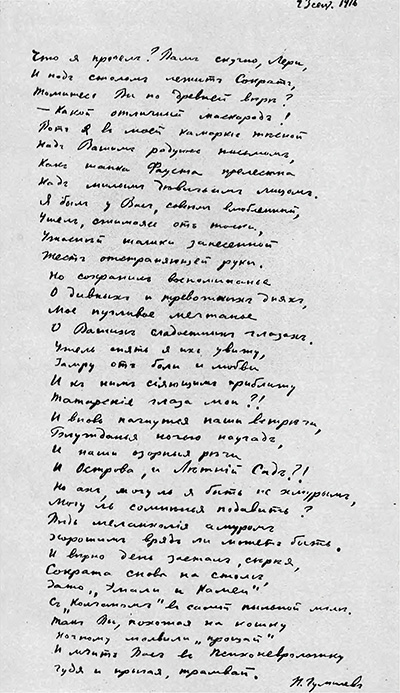 23 сент. 1916
Что я прочелъ? Вамъ скучно, Лери,
И подъ столомъ лежитъ Сократъ,
Томитесь Вы по древней вѣрѣ?
— Какой отличный маскарадъ!
Вотъ я въ моей каморкѣ тѣсной
Надъ Вашимъ радуюсь письмомъ,
Какъ шапка Фауста прелестна
Надъ милымъ дѣвичьимъ лицомъ.
Я былъ у Васъ, совсѣмъ влюбленный,
Ушелъ, сжимаясь отъ тоски,
Ужасней шашки занесенной
Жестъ отстраняющей руки.
Но сохранилъ воспоминанье
О дивныхъ и тревожныхъ дняхъ,
Мое пугливое мечтанье
О Вашихъ сладостныхъ глазахъ.
Ужель опять я ихъ увижу,
Замру отъ боли и любви
И къ нимъ сіяющимъ приближу
Татарскія глаза мои?!
И вновь начнутся наши встрѣчи,
Блужданья ночью наугадъ,
И наши озорныя рѣчи
И Острова, и Лѣтній Садъ?!
Но ахъ, могу ль я быть не хмурымъ,
Могу ль сомнѣнья подавить?
Вѣдь меланхолія амуромъ
Хорошимъ врядъ ли можетъ быть.
И вѣрно день засталъ, сѣрѣя,
Сократа снова на столѣ,
Зато „Эмали и Камеи"
Съ „Колчаномъ" въ самой пыльной мглѣ.
Такъ Вы, похожая на кошку
Ночному молвили „прощай"
И мчитъ Васъ въ Психоневроложку
Гудя и прыгая, трамвай.
Н. Гумилевъ